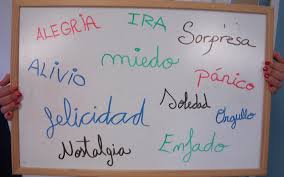 ALEGRÍA IRA Sorpresa
miedo
ALIVIO pánico
felicidad Soledad Orgullo
Nostalgia Enfado